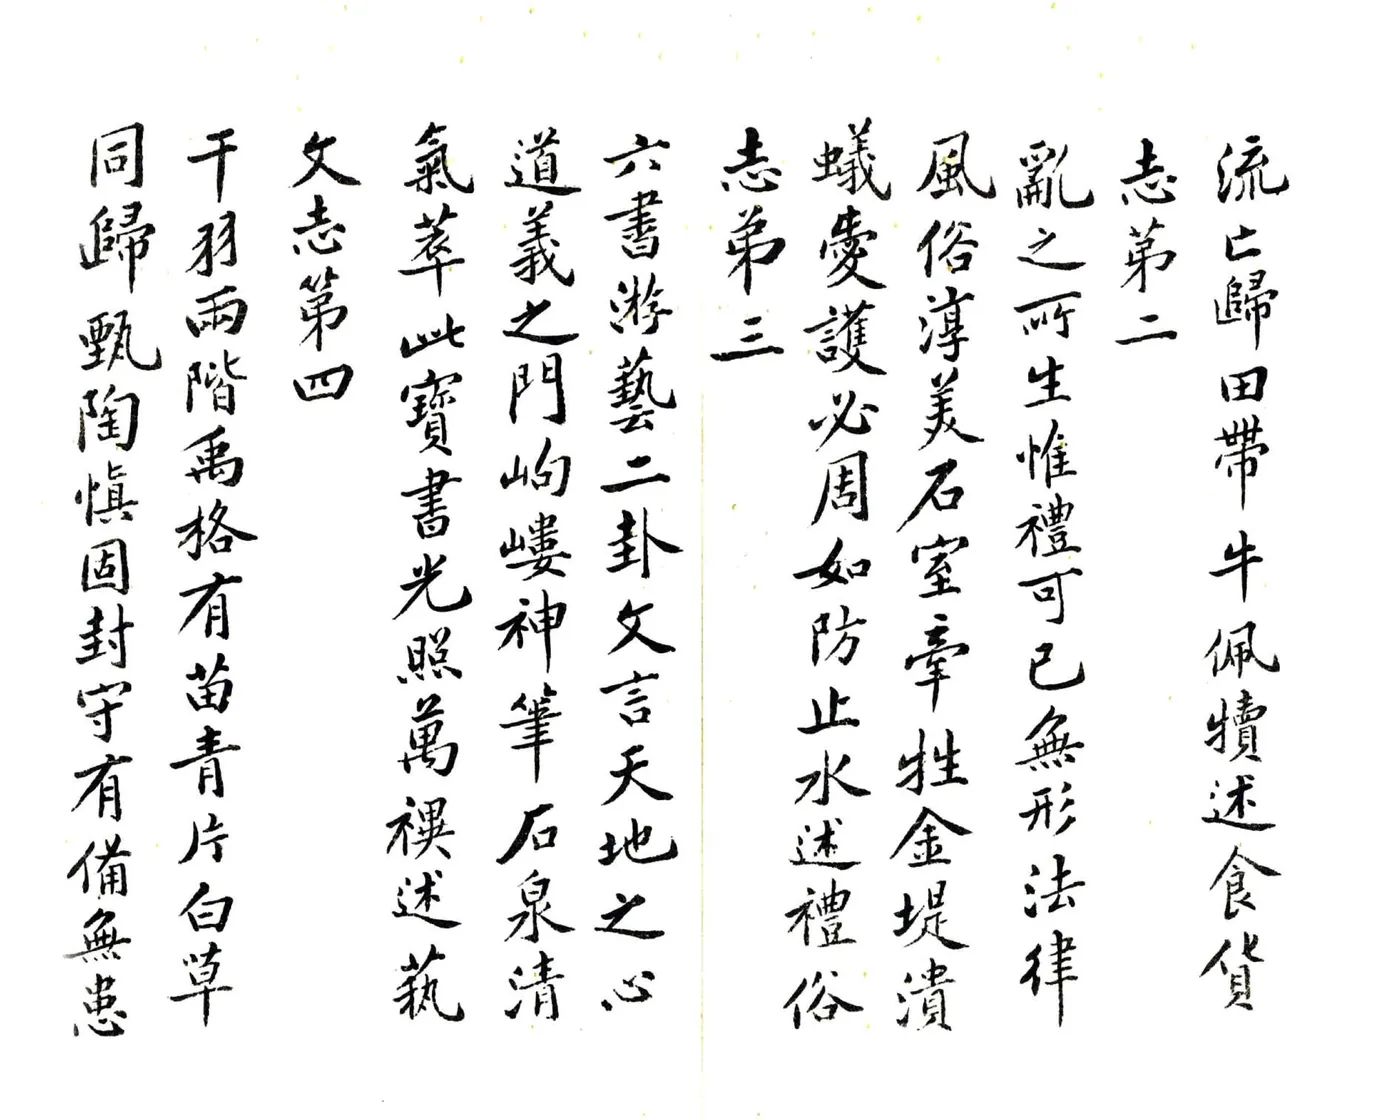 流亡歸田帶牛佩犢述食貨
志第二
亂之所生惟禮可已無形法律
風俗淳美石室牽牲金堤潰
蟻愛護必周如防止水述禮俗
志第三
六書游藝二卦文言天地之心
道義之門岣嶁神筆石泉清
氣萃此寶書光照萬禩述藝
文志第四
干羽兩階禹格有苗青片白草
同歸甄陶慎固封守有備無患